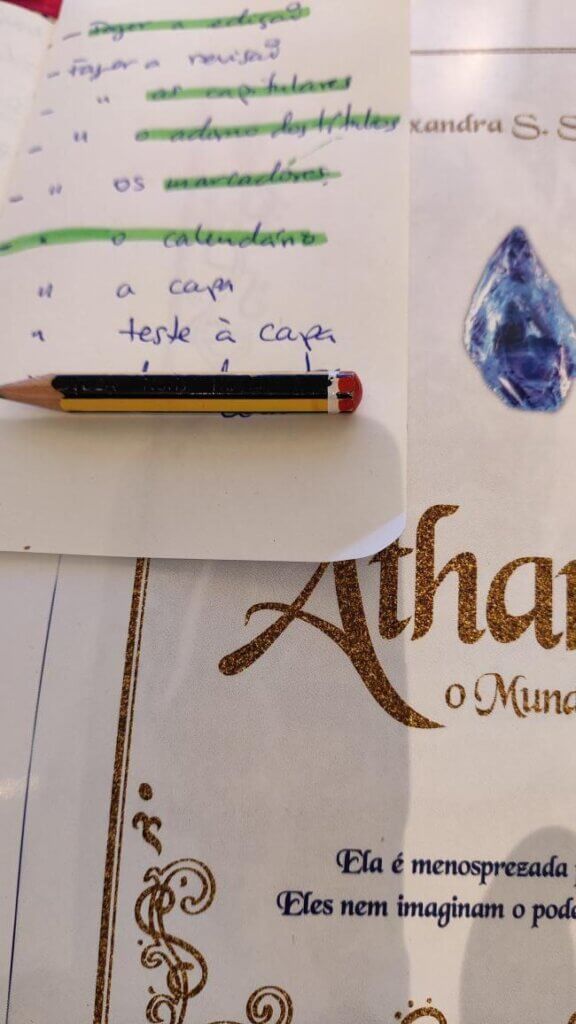 - Fazer a edição
- Fazer a revisão
- " as capitulares
- " o adorno dos títulos
- " os marcadores
- " o calendário
" a capa
" teste à capa
xandra S. S
Athar
o Mund
Ela é menosprezada
Eles nem imaginam o pode